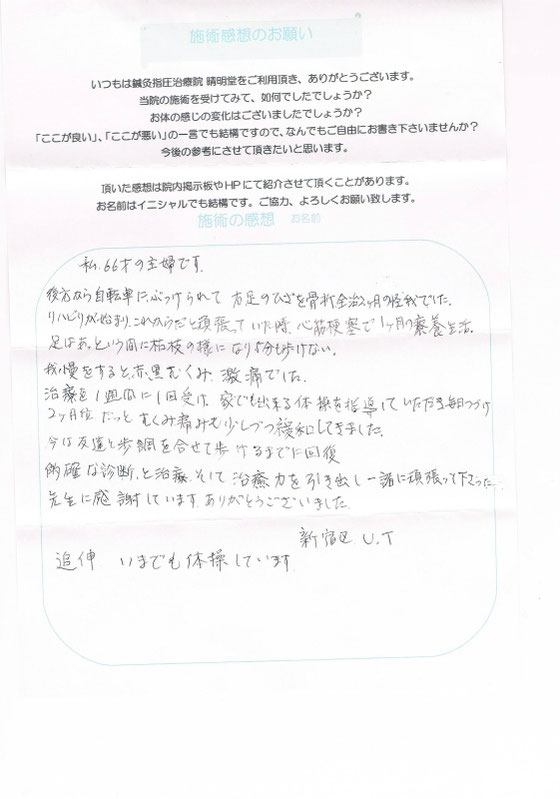 施術感想のお願い
いつもは鍼灸指圧治療院 晴明堂をご利用頂き、ありがとうございます。
当院の施術を受けてみて、如何でしたでしょうか？
お体の感じの変化はございましたでしょうか？
「ここが良い」、「ここが悪い」の一言でも結構ですので、なんでもご自由にお書き下さいませんか？
今後の参考にさせて頂きたいと思います。
頂いた感想は院内掲示板やHPにて紹介させて頂くことがあります。
お名前はイニシャルでも結構です。ご協力、よろしくお願い致します。
施術の感想 お名前
私、66才の主婦です。
後方から自転車にぶっけられて 右足のひざを骨折全治2ヶ月の怪我でした。
リハビリが始まり、これからだと頑張っていた時、心筋梗塞で1ヶ月の療養生活。
足はあっという間に枯枝の様になり5分も歩けない。
我慢をすると、赤黒むくみ、激痛でした。
治療を1週間に1回受け、家でも出来る体操を指導していただき毎日つづけ
2ヶ月位だっと むくみ痛みも少しづつ緩和してきました。
今は友達と歩調を合せて歩けるまでに回復
的確な診断、と治療、そして治癒力を引き出し一諸に頑張って下さった
先生に感謝しています。ありがとうございました。
新宿区 U.T
追伸 いまでも体操しています